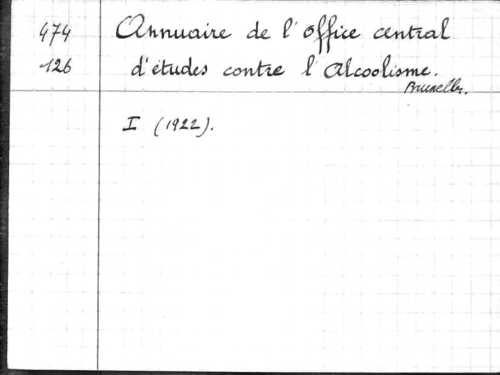 474 Annuaire de l'Office central
126 d'études contre l'Alcoolisme.
Bruxelles.
I (1922).